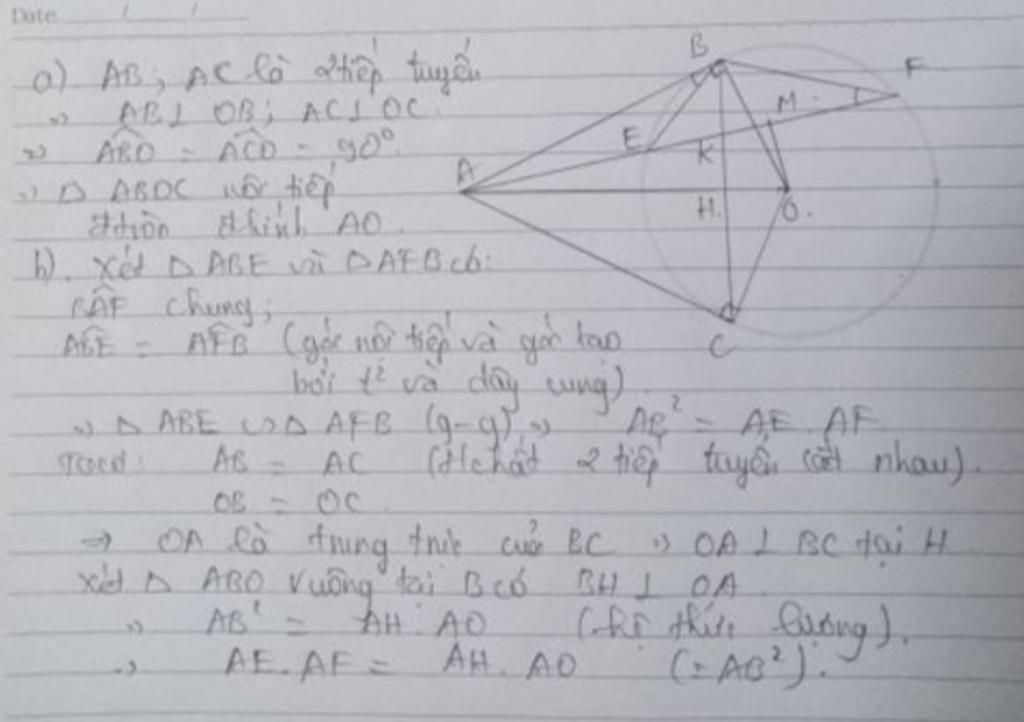 Date / /
a) AB; AC là 2 tiếp tuyến
=> AB ⊥ OB; AC ⊥ OC.
=> ABO = ACO = 90°
=> ABOC nội tiếp
đtròn đkính AO.
b). Xét Δ ABE và Δ AFB có:
BAF chung;
ABE = AFB (góc nội tiếp và góc tạo
bởi t² và dây cung)
=> Δ ABE ∽ Δ AFB (g-g) => AB² = AE. AF
Ta có: AB = AC (t/chất 2 tiếp tuyến cắt nhau).
OB = OC
=> OA là trung trực của BC => OA ⊥ BC tại H
Xét Δ ABO vuông tại B có BH ⊥ OA
=> AB² = AH. AO (hệ thức lượng).
=> AE. AF = AH. AO (= AB²).
B
F
M
E
K
A
H
O
C